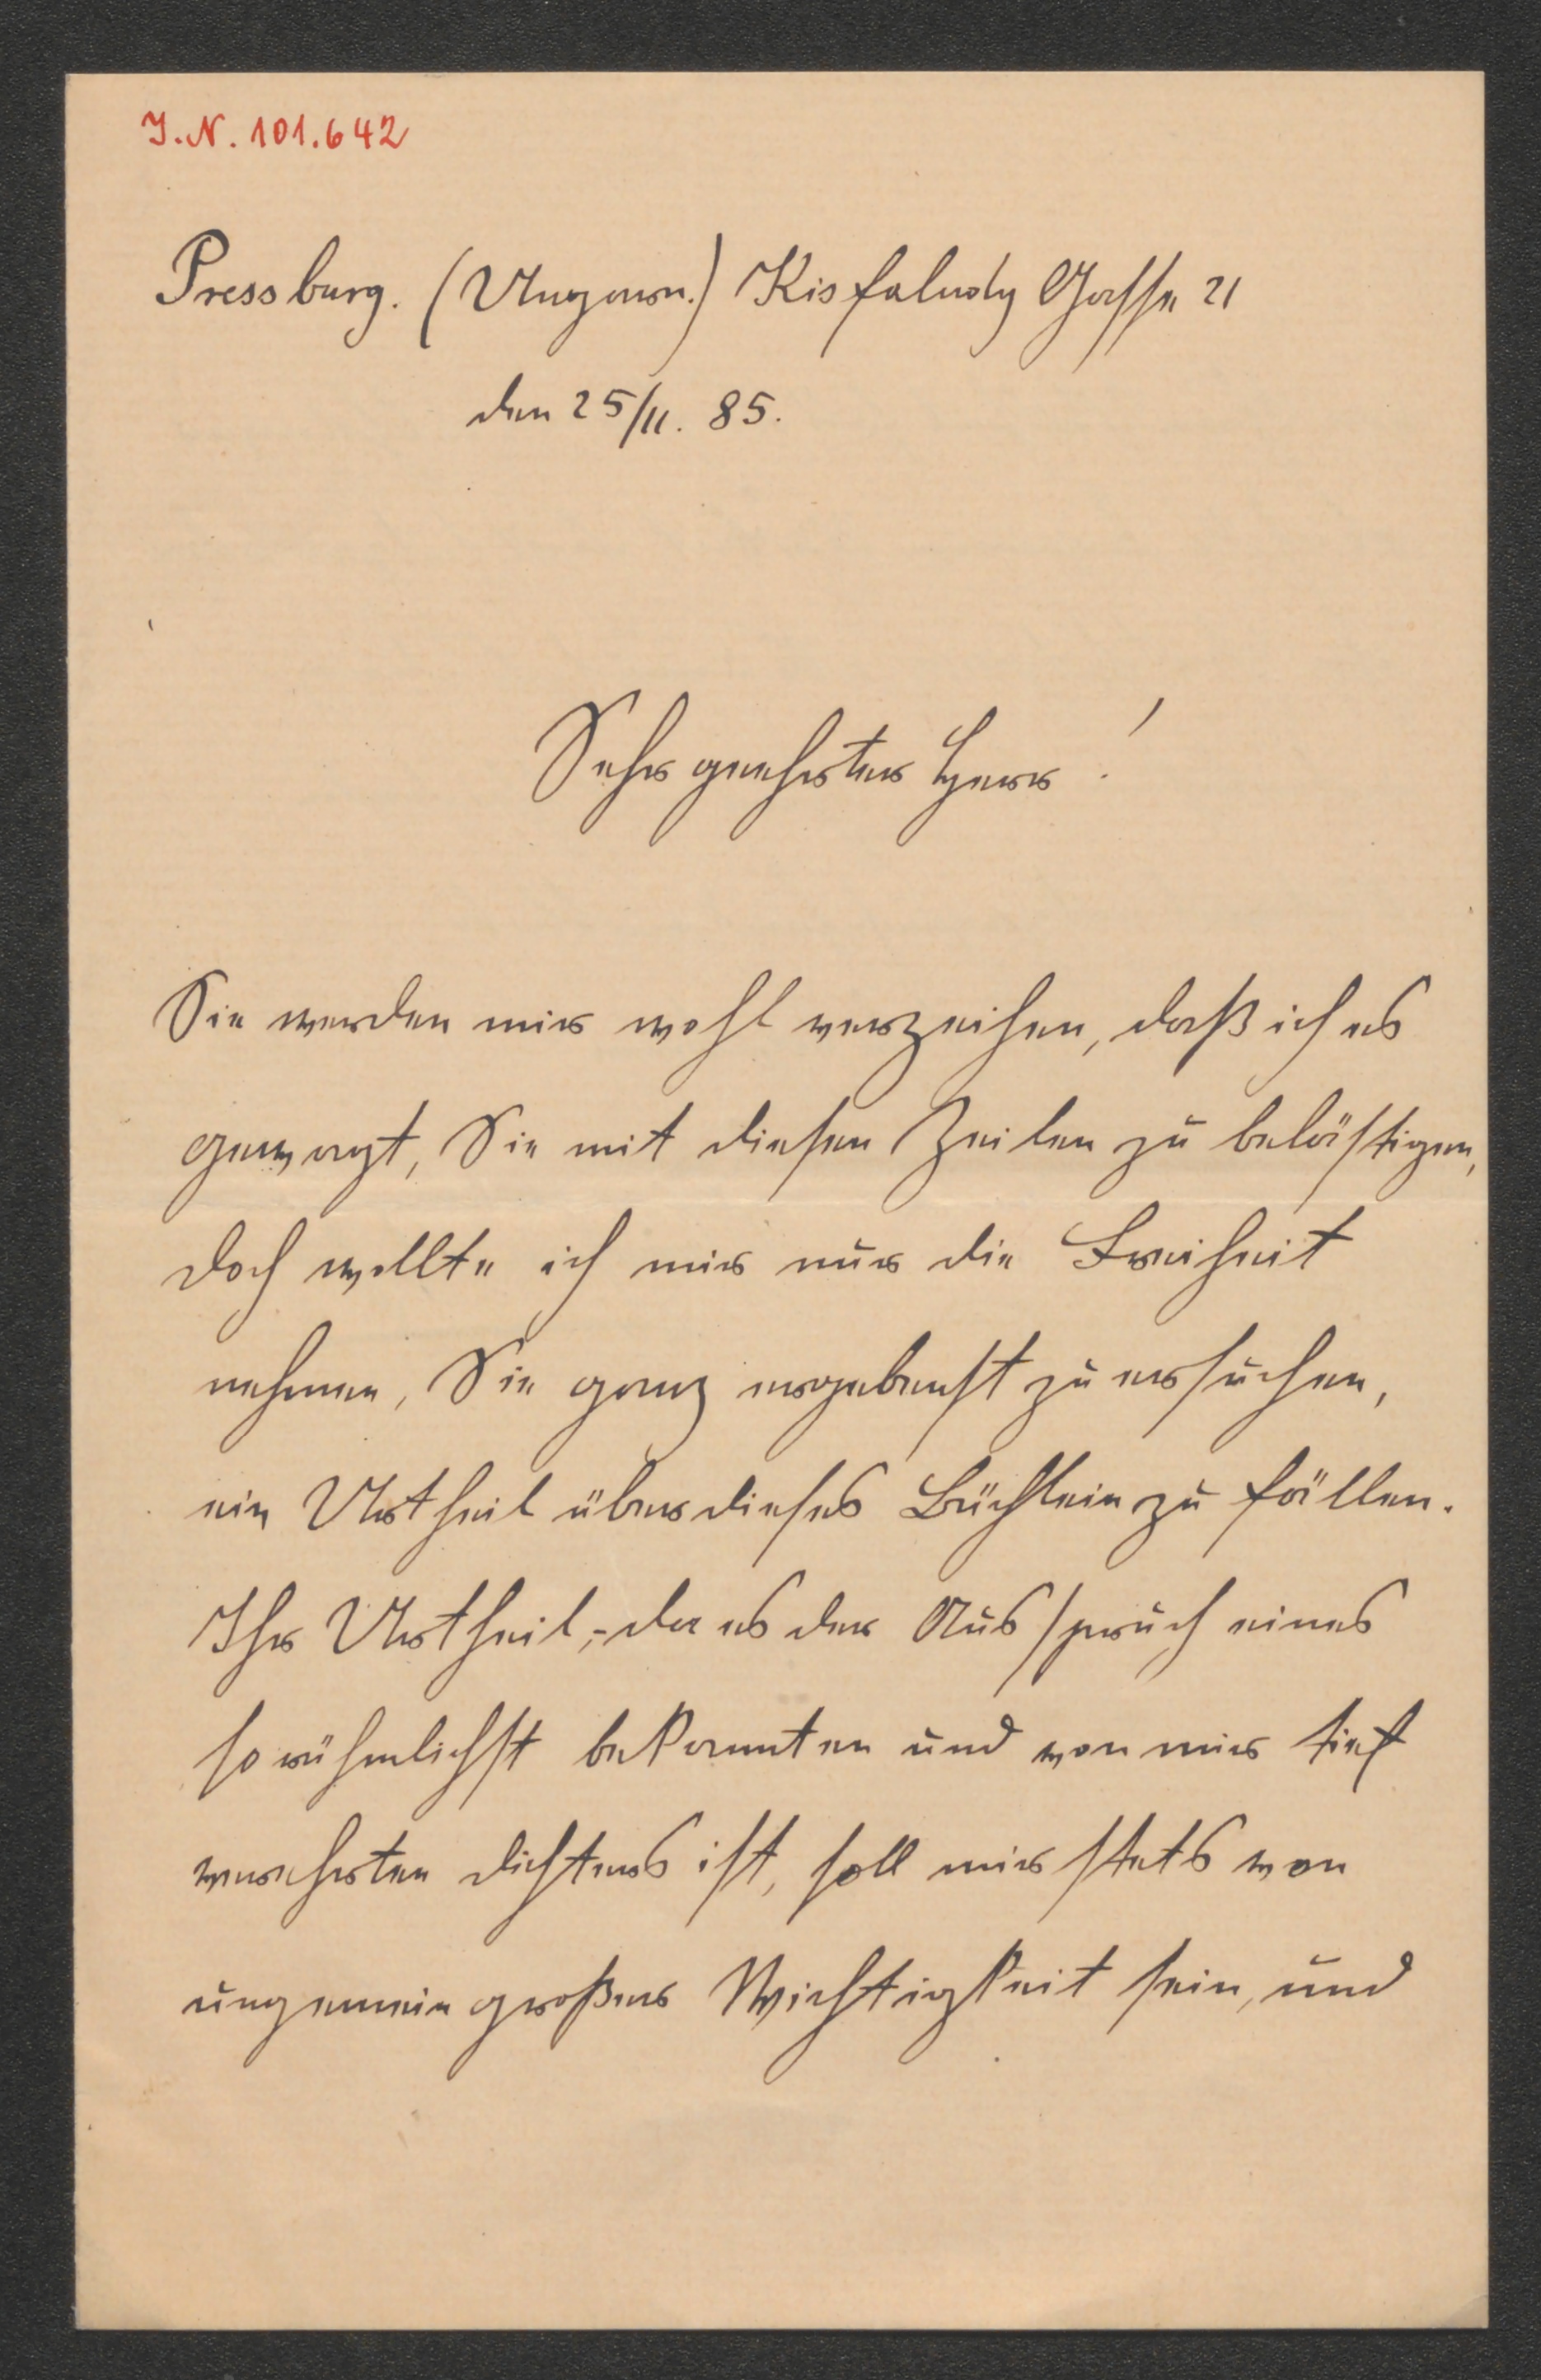 J.N. 101.642
Pressburg. (Ungarn.) Kisfaludy Gasse 21
den 25/11. 85.
Sehr geehrter Herr!
Sie werden mir wohl verzeihen, daß ich es
gewagt, Sie mit diesen Zeilen zu belästigen,
doch wollte ich mir nur die Freiheit
nehmen, Sie ganz ergebenst zu ersuchen,
ein Urtheil über dieses Büchlein zu fällen.
Ihr Urtheil,- da es der Ausspruch eines
so rühmlichst bekannten und von mir tief
verehrten Dichters ist, soll mir stets von
ungemein großer Wichtigkeit sein, und